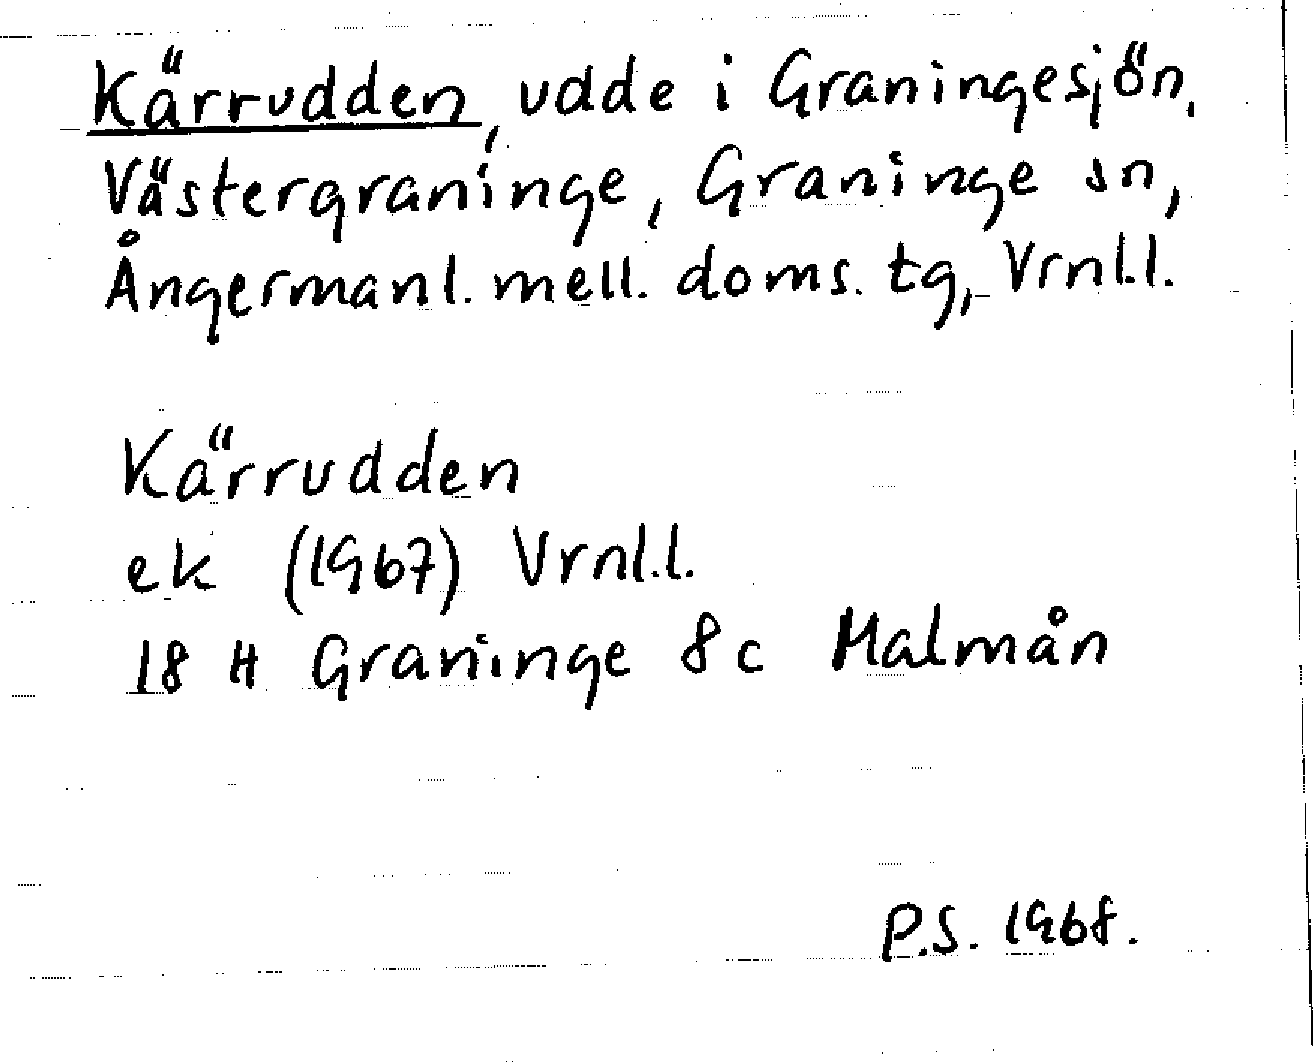 Kärrudden, udde i Graningesjön,
Västergraninge, Graninge sn,
Ångermanl. mell. doms. tg, Vrnl.l.
Kärrudden
ek (1967) Vrnl.l.
18 H Graninge 8c Malmån
P.S. 1968.